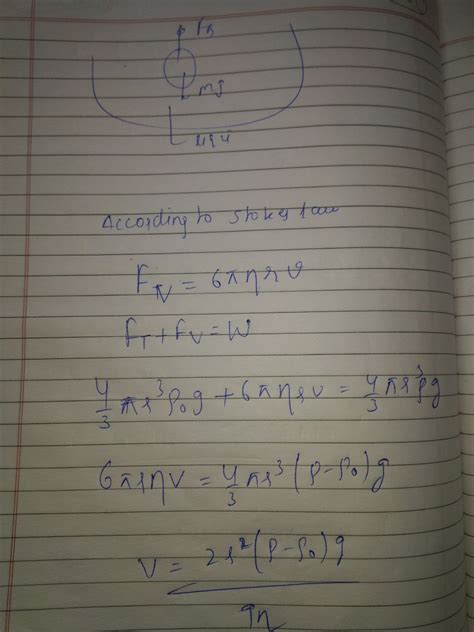 FB
mg
According to Stokes law
F_V = 6πηrv
F_T + F_V = W
4/3 πr³ρ₀g + 6πηrv = 4/3 πr³ρg
6πrηv = 4/3 πr³(ρ-ρ₀)g
v = 2r²(ρ-ρ₀)g / 9η